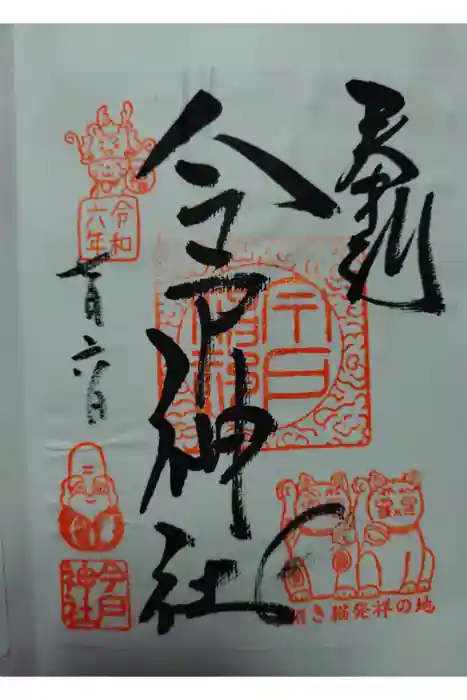 奉拝
今戸神社
令和
六年
十一月六日
今戸
神社
招き猫発祥の地